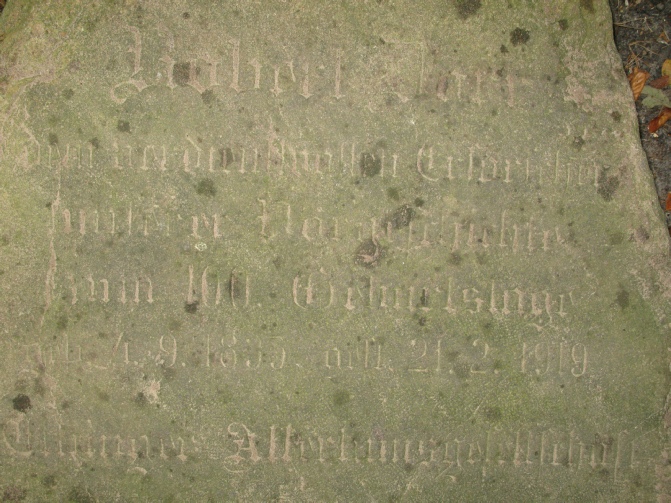 Robert Dorr
dem verdienstvollen Erforscher
unserer Vorgeschichte
zum 100. Geburtstage
geb. 4. 9. 1835. gest. 21. 2. 1919
Elbinger Altertumsgesellschaft